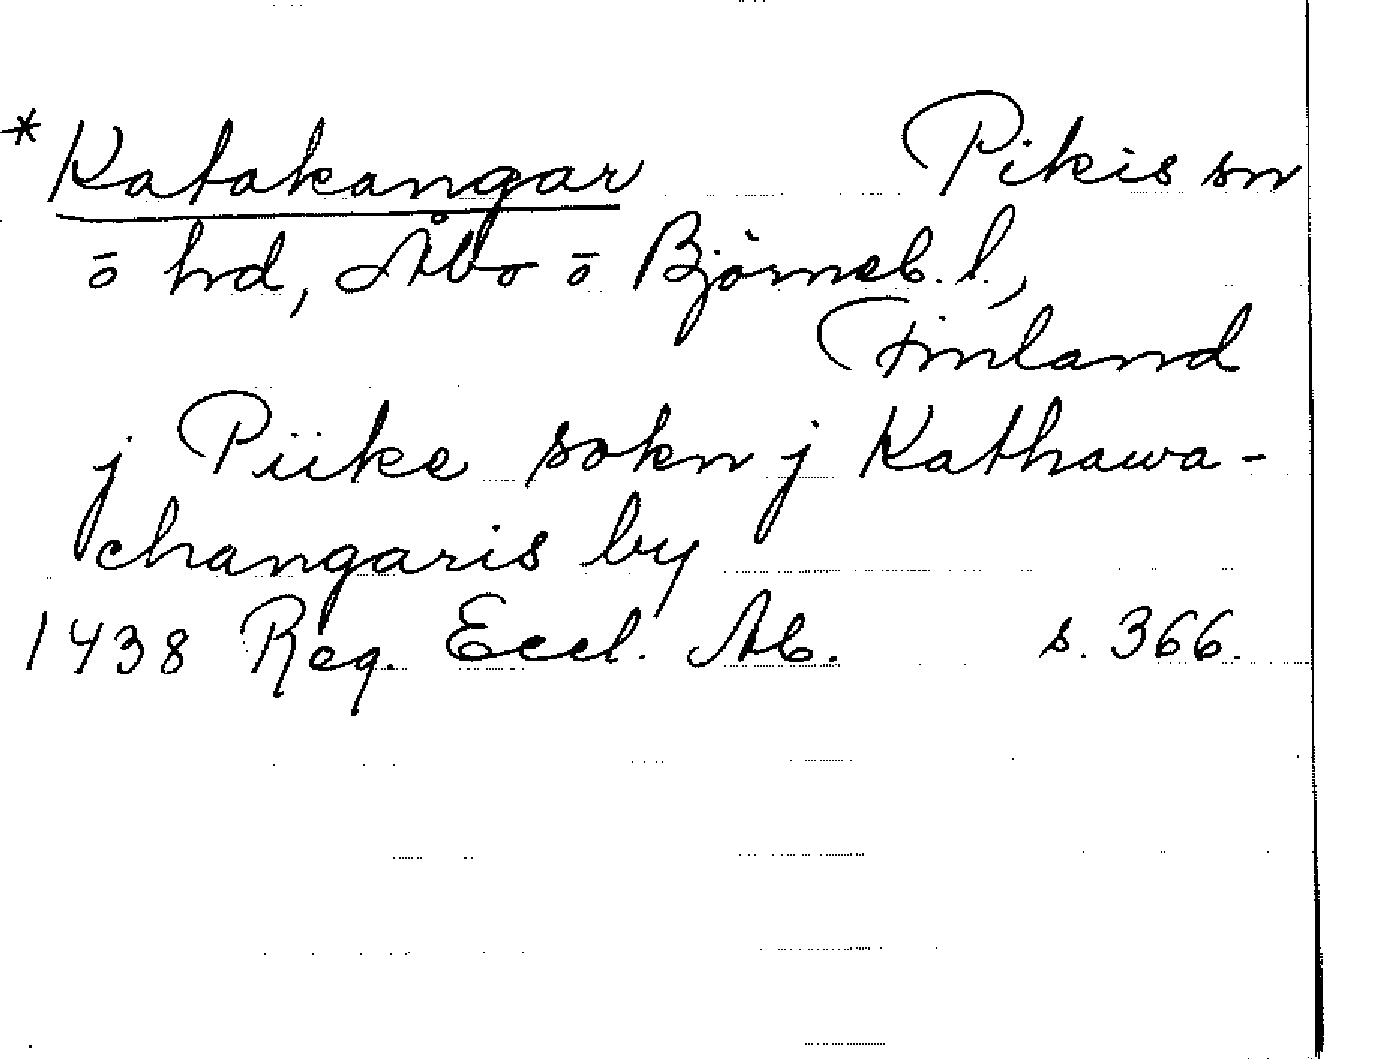 *Katakangar Pikis sn
ō hd, Åbo ō Björneb. l.,
Finland
j Piike sokn j Kathawa-
changaris by
1438 Reg. Eccl. Ab. s. 366.